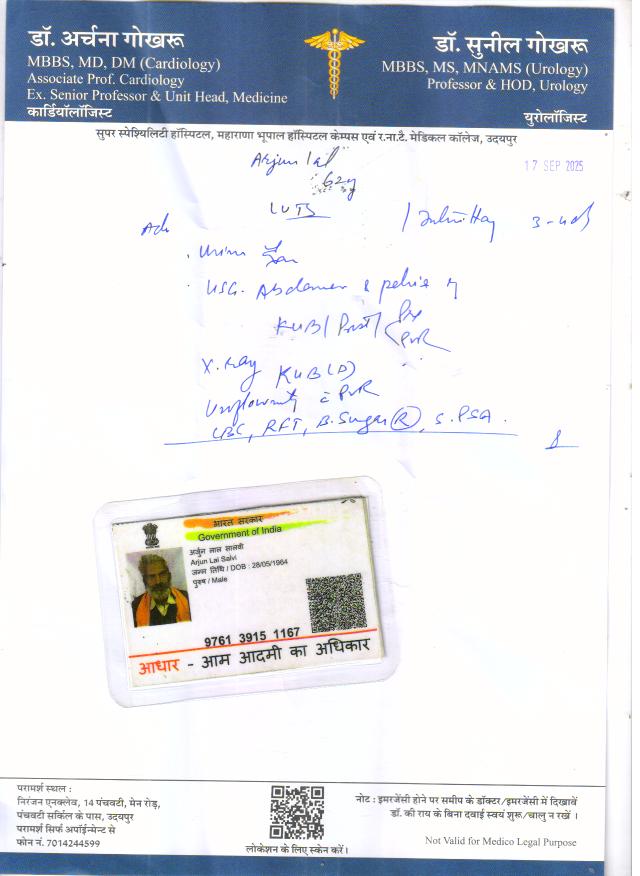 डॉ. अर्चना गोखरू
MBBS, MD, DM (Cardiology)
Associate Prof. Cardiology
Ex. Senior Professor & Unit Head, Medicine
कार्डियॉलॉजिस्ट
डॉ. सुनील गोखरू
MBBS, MS, MNAMS (Urology)
Professor & HOD, Urology
युरोलॉजिस्ट
सुपर स्पेश्यिलिटी हॉस्पिटल, महाराणा भूपाल हॉस्पिटल केम्पस एवं र.ना.टै. मेडिकल कॉलेज, उदयपुर
Arjun lal
17 SEP 2025
62y
LUTS
Adv
Urine
USG. Abdomen & pelvis
KUB / Prost / Pre
PVR
X-ray KUB (P)
Uroflowmetry c̄ PVR
CBC, RFT, B.Sugar (R), S.PSA.
भारत सरकार
Government of India
अर्जुन लाल सालवी
Arjun Lal Salvi
जन्म तिथि / DOB : 28/05/1964
पुरुष / Male
9761 3915 1167
आधार - आम आदमी का अधिकार
परामर्श स्थल :
निरंजन एनक्लेव, 14 पंचवटी, मेन रोड़,
पंचवटी सर्किल के पास, उदयपुर
परामर्श सिर्फ अपॉईन्मेन्ट से
फोन नं. 7014244599
लोकेशन के लिए स्केन करें।
नोट : इमरजेंसी होने पर समीप के डॉक्टर/इमरजेंसी में दिखावें
डॉ. की राय के बिना दवाई स्वयं शुरू/चालु न रखें ।
Not Valid for Medico Legal Purpose